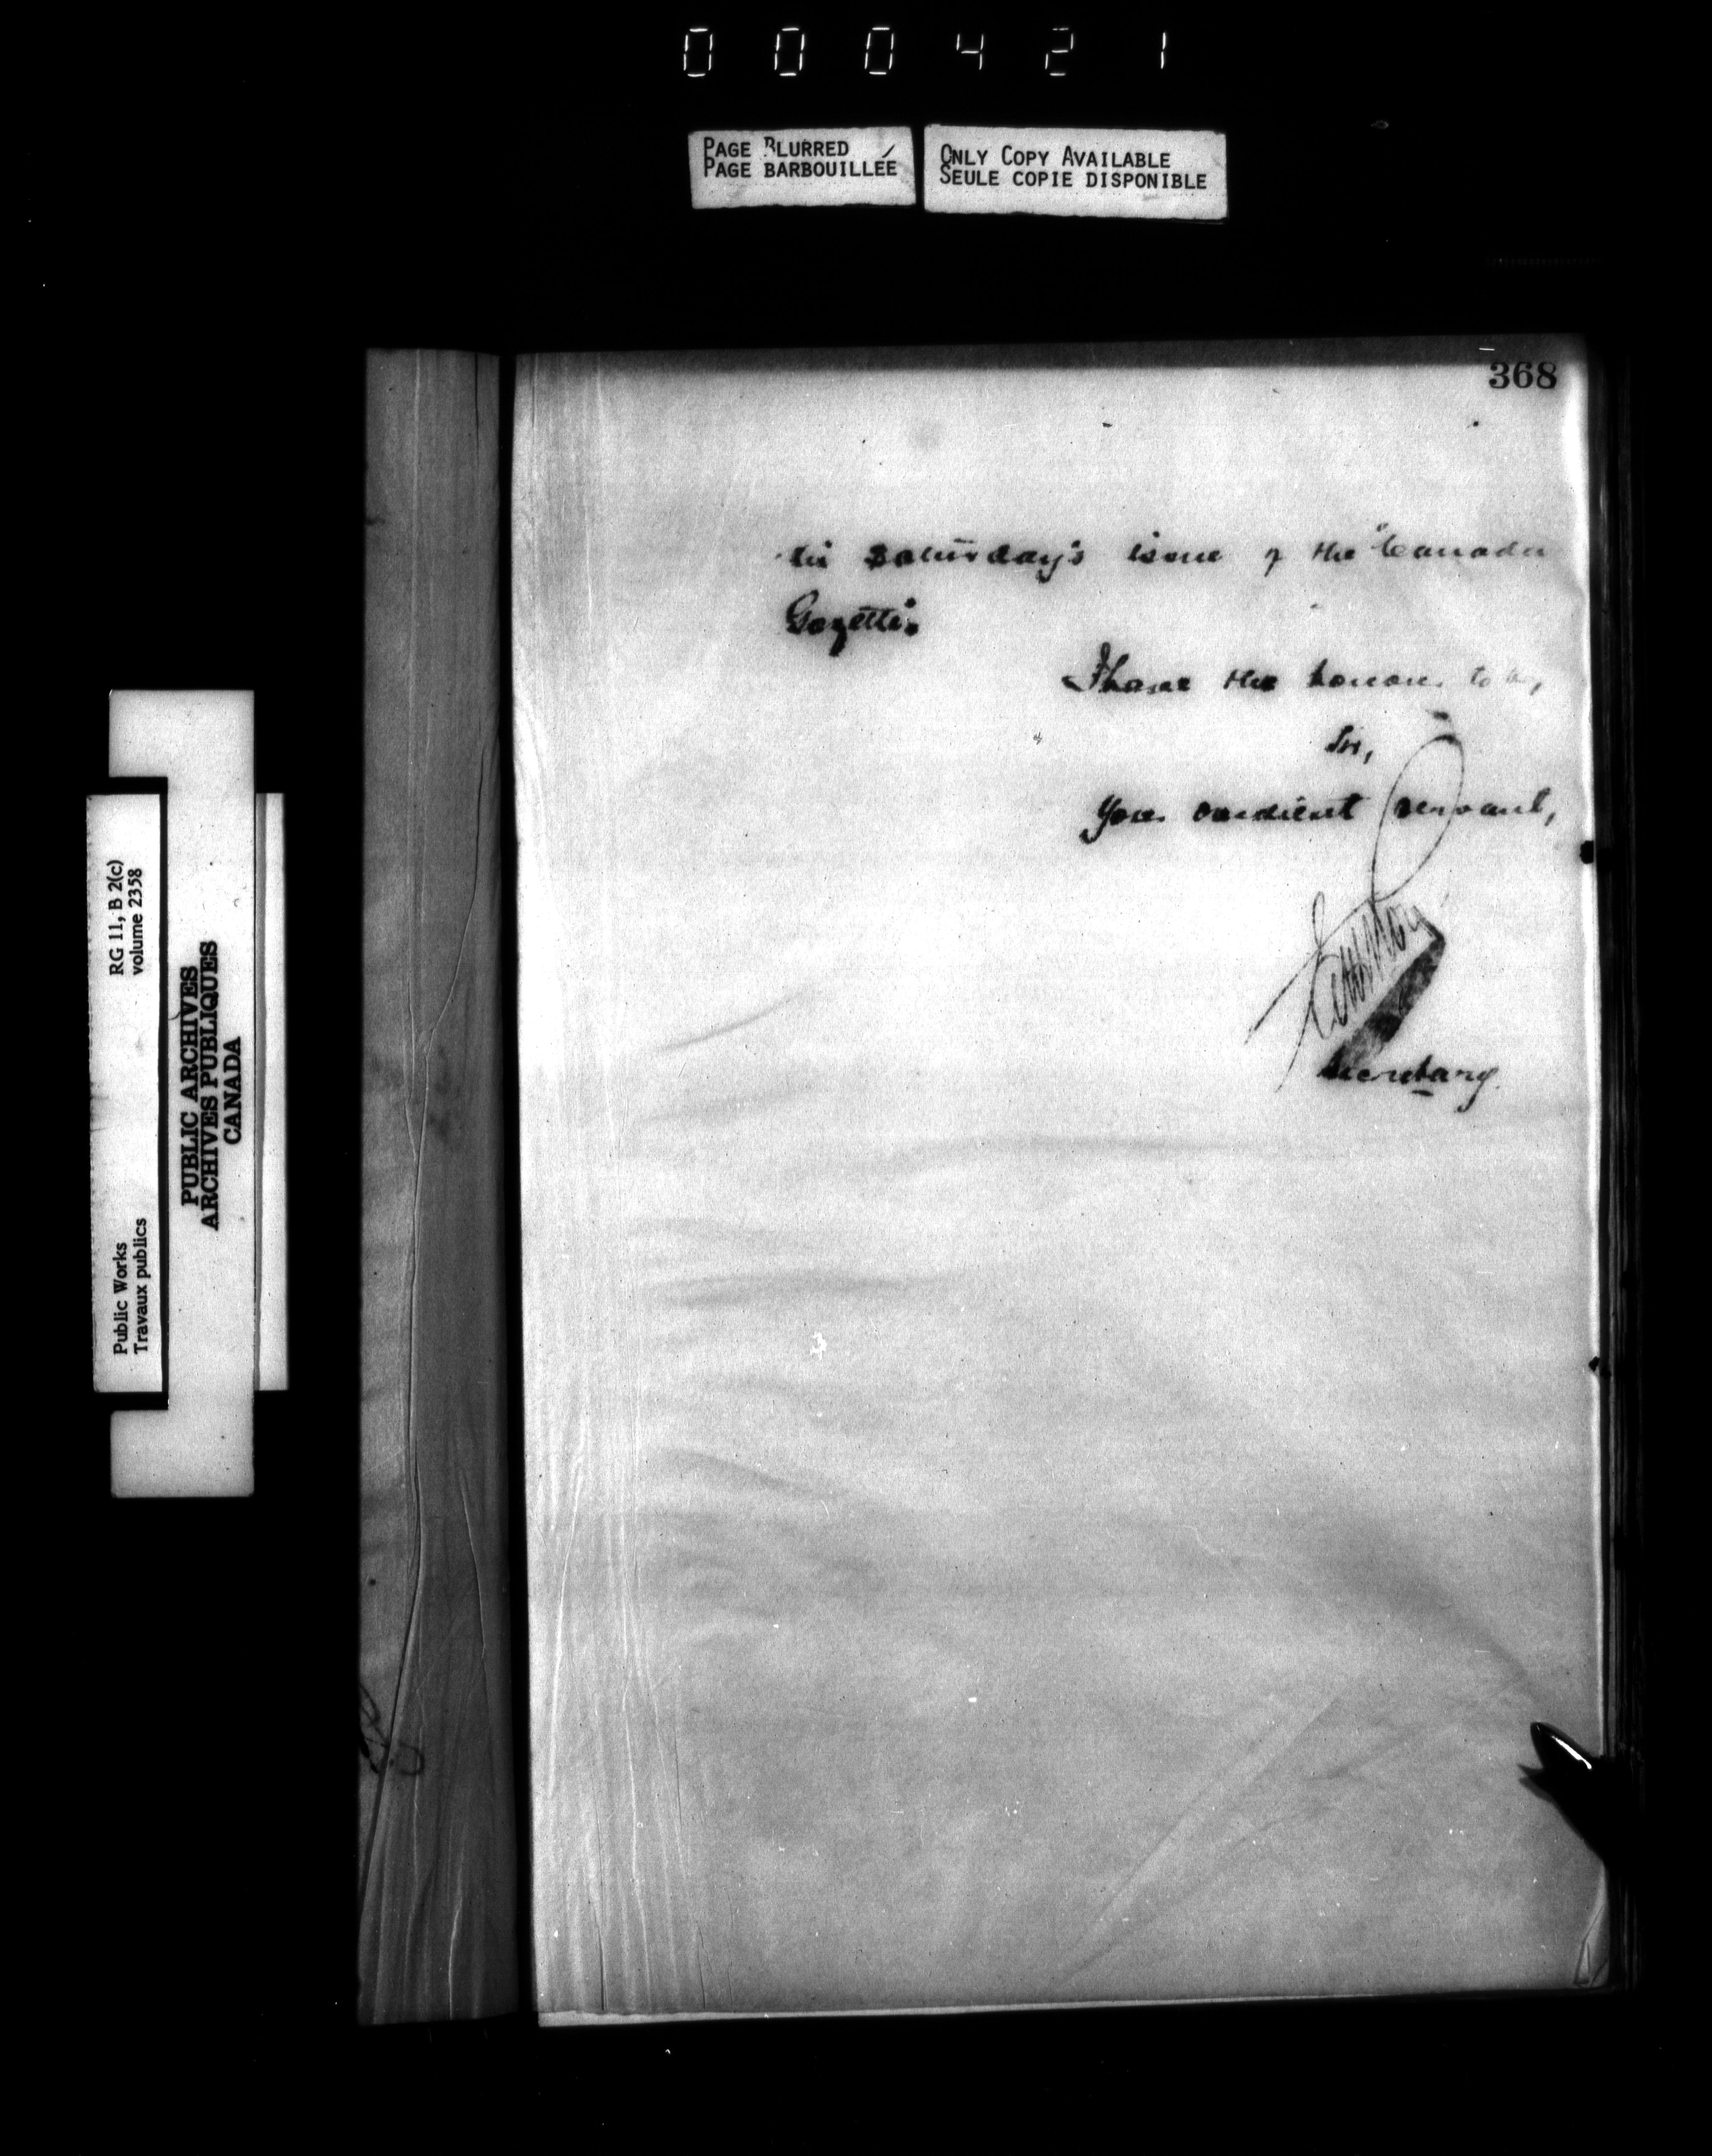 000421
PAGE BLURRED
PAGE BARBOUILLÉE
ONLY COPY AVAILABLE
SEULE COPIE DISPONIBLE
368
in Saturday's issue of the "Canada
Gazette".
I have the honour to be,
Sir,
Your obedient servant,
Secretary.
RG 11, B 2(c)
volume 2358
Public Works
Travaux publics
PUBLIC ARCHIVES
ARCHIVES PUBLIQUES
CANADA